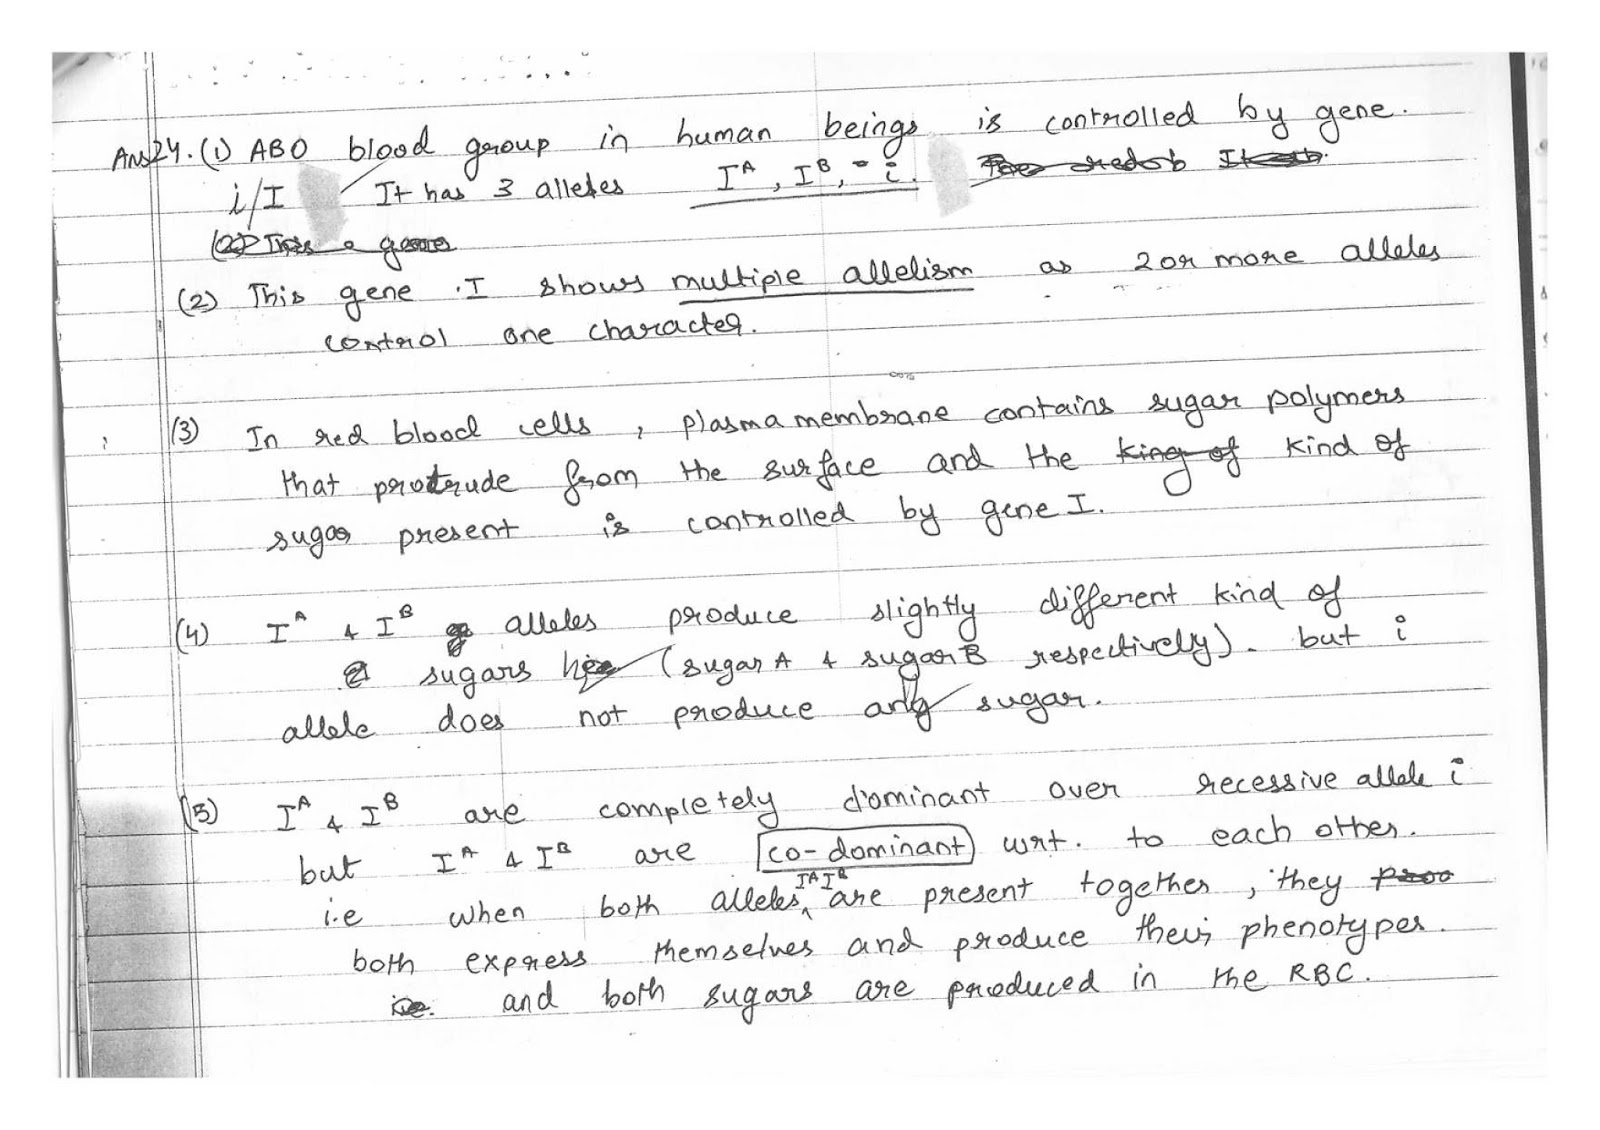 Ans24. (1) ABO blood group in human beings is controlled by gene.
i/I It has 3 alleles I^A, I^B, i.
(2) This gene
(2) This gene I shows multiple allelism as 2 or more alleles
control one character.
(3) In red blood cells, plasma membrane contains sugar polymers
that protrude from the surface and the king of kind of
sugar present is controlled by gene I.
(4) I^A & I^B alleles produce slightly different kind of
sugars (sugar A & sugar B respectively). but i
allele does not produce any sugar.
(5) I^A & I^B are completely dominant over recessive allele i
but I^A & I^B are co-dominant wrt. to each other.
i.e when both alleles I^A I^B are present together, they
both express themselves and produce their phenotypes.
and both sugars are produced in the RBC.